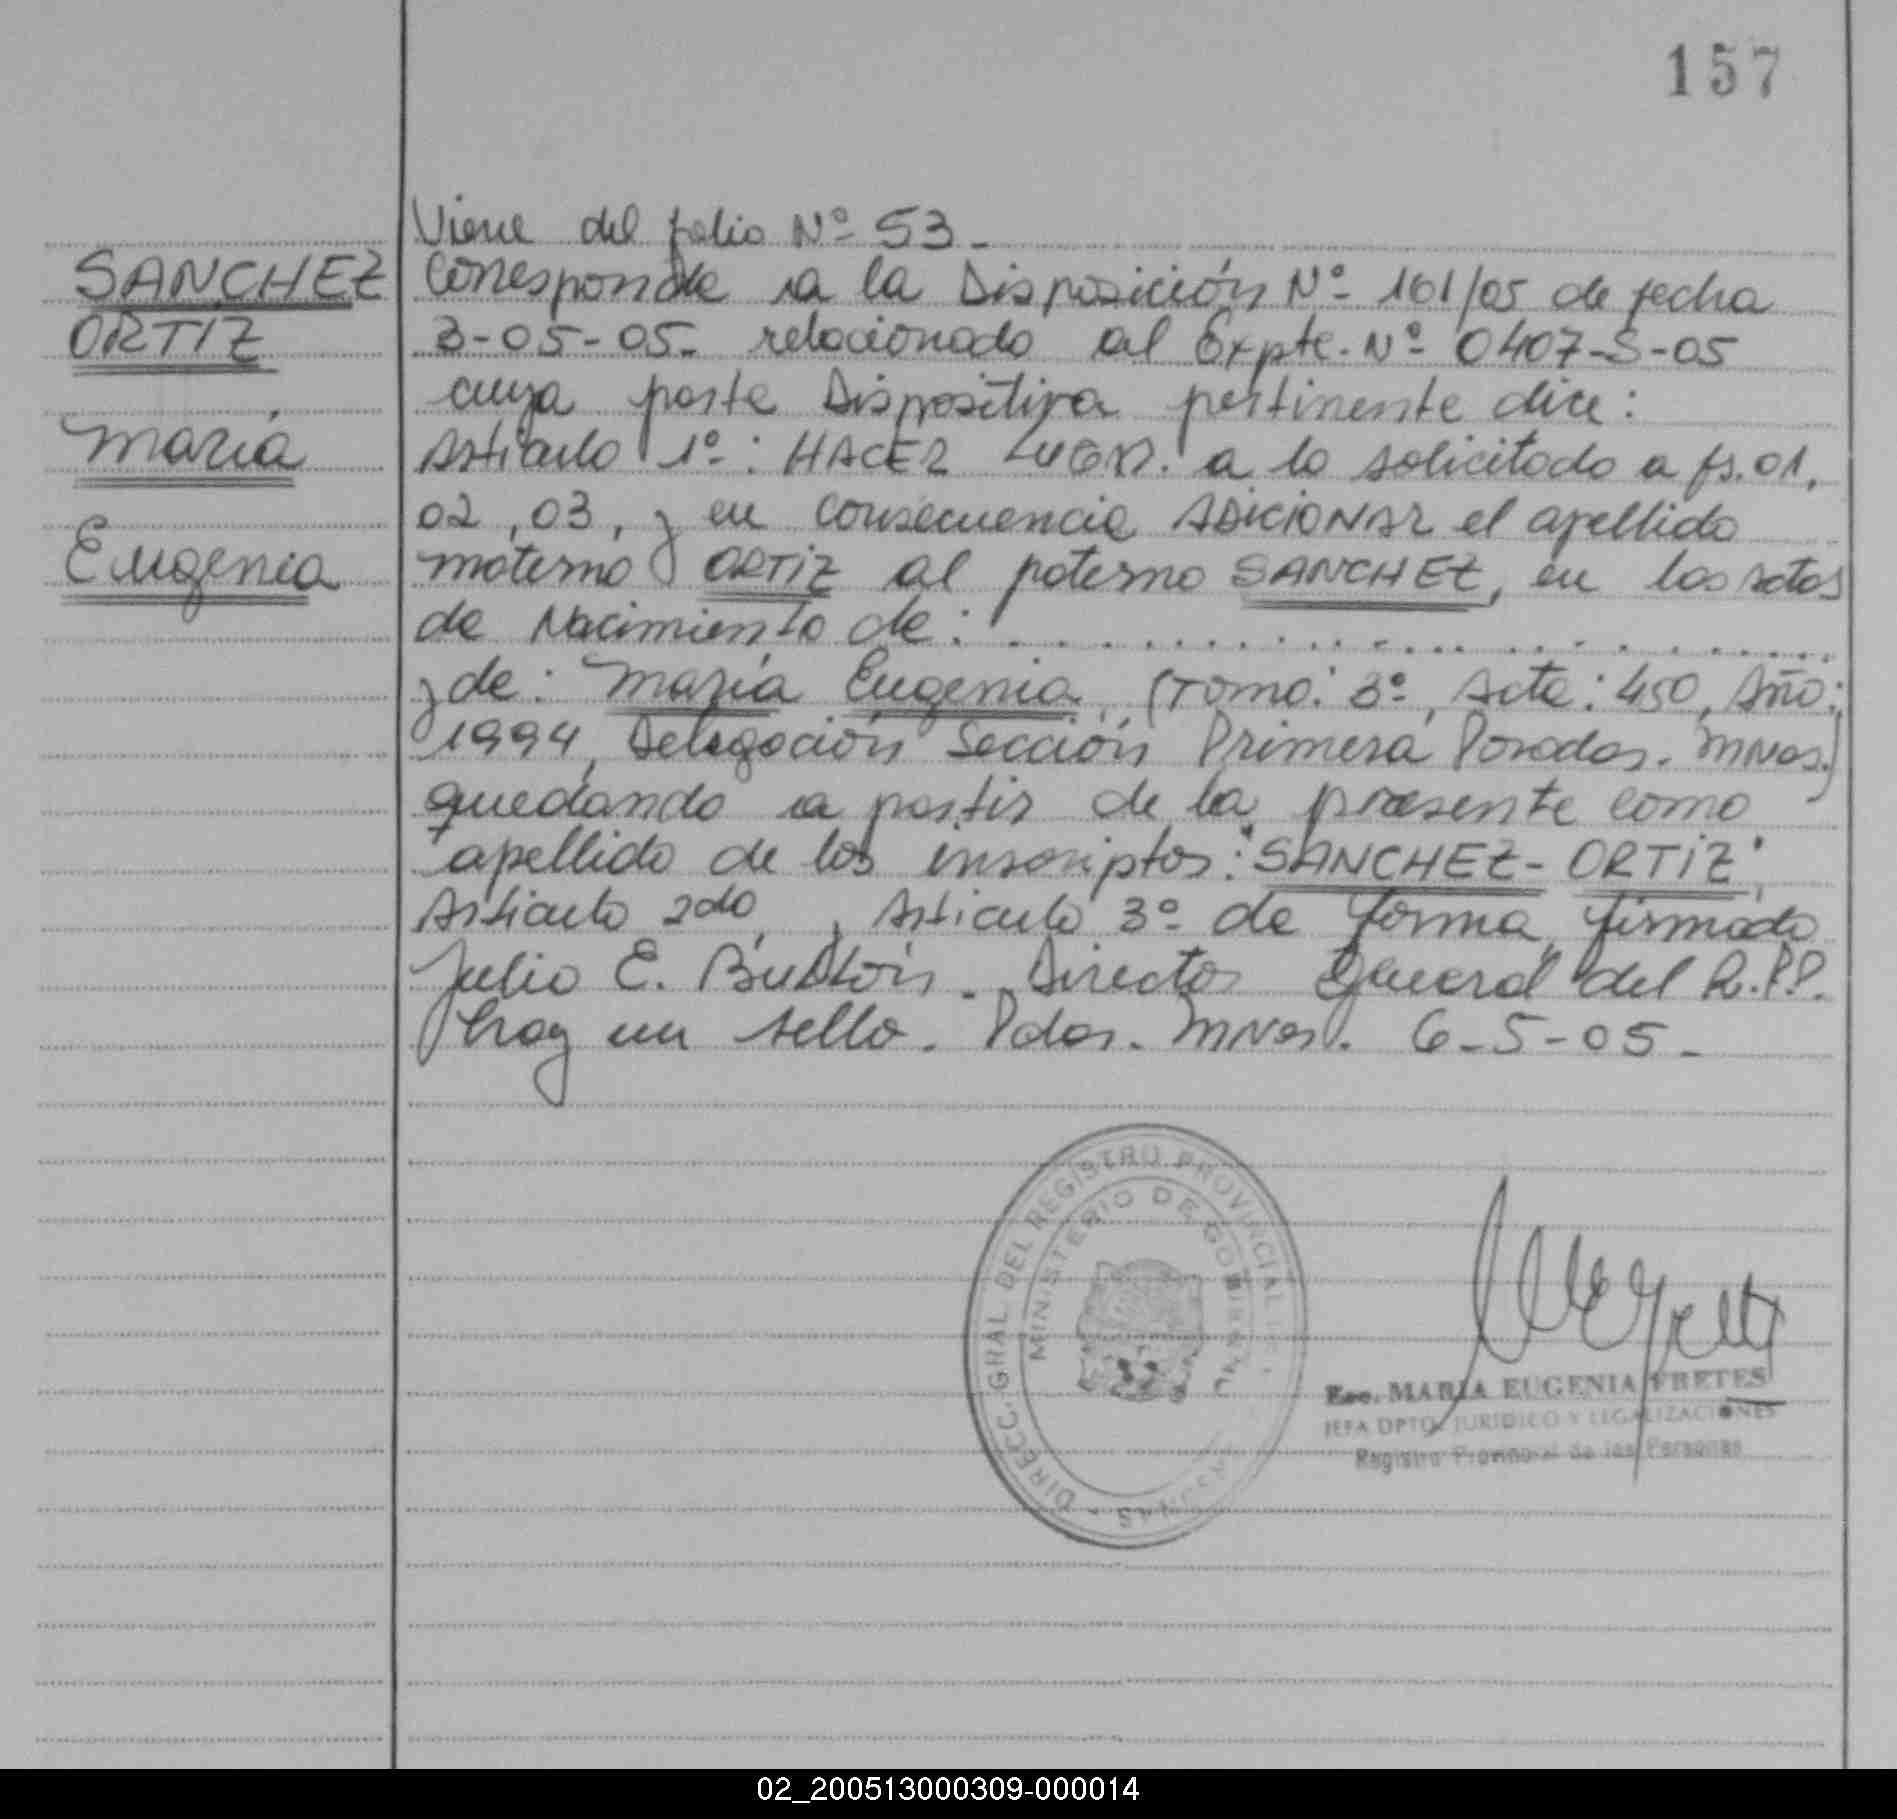 157
SANCHEZ
ORTIZ
María
Eugenia
Viene del folio Nº 53.
Corresponde a la Disposición Nº 161/05 de fecha
3-05-05. relacionado al Expte. Nº 0407-S-05
cuya parte Dispositiva pertinente dice:
Artículo 1º: HACER LUGAR. a lo solicitado a fs. 01,
02, 03, y en consecuencia ADICIONAR el apellido
materno ORTIZ al paterno SANCHEZ, en las actas
de Nacimiento de: . . . . . . . . . . . . . . .
y de: María Eugenia, (Tomo: 3º, Acta: 450, Año:
1994, Delegación Sección Primera Posadas. Mnes.)
quedando a partir de la presente como
apellido de los inscriptos: "SANCHEZ-ORTIZ";
Artículo 2do, , Artículo 3º de forma, firmado
Julio E. . Director General del R.P.P.
hay un sello. Pdas. Mnes. 6-5-05-
DIRECC. GRAL DEL REGISTRO PROVINCIAL
MINISTERIO DE GOBIERNO
Esc. MARIA EUGENIA FRETES
JEFA DPTO. JURIDICO Y LEGALIZACIONES
Registro Provincial de las Personas
02_200513000309-000014